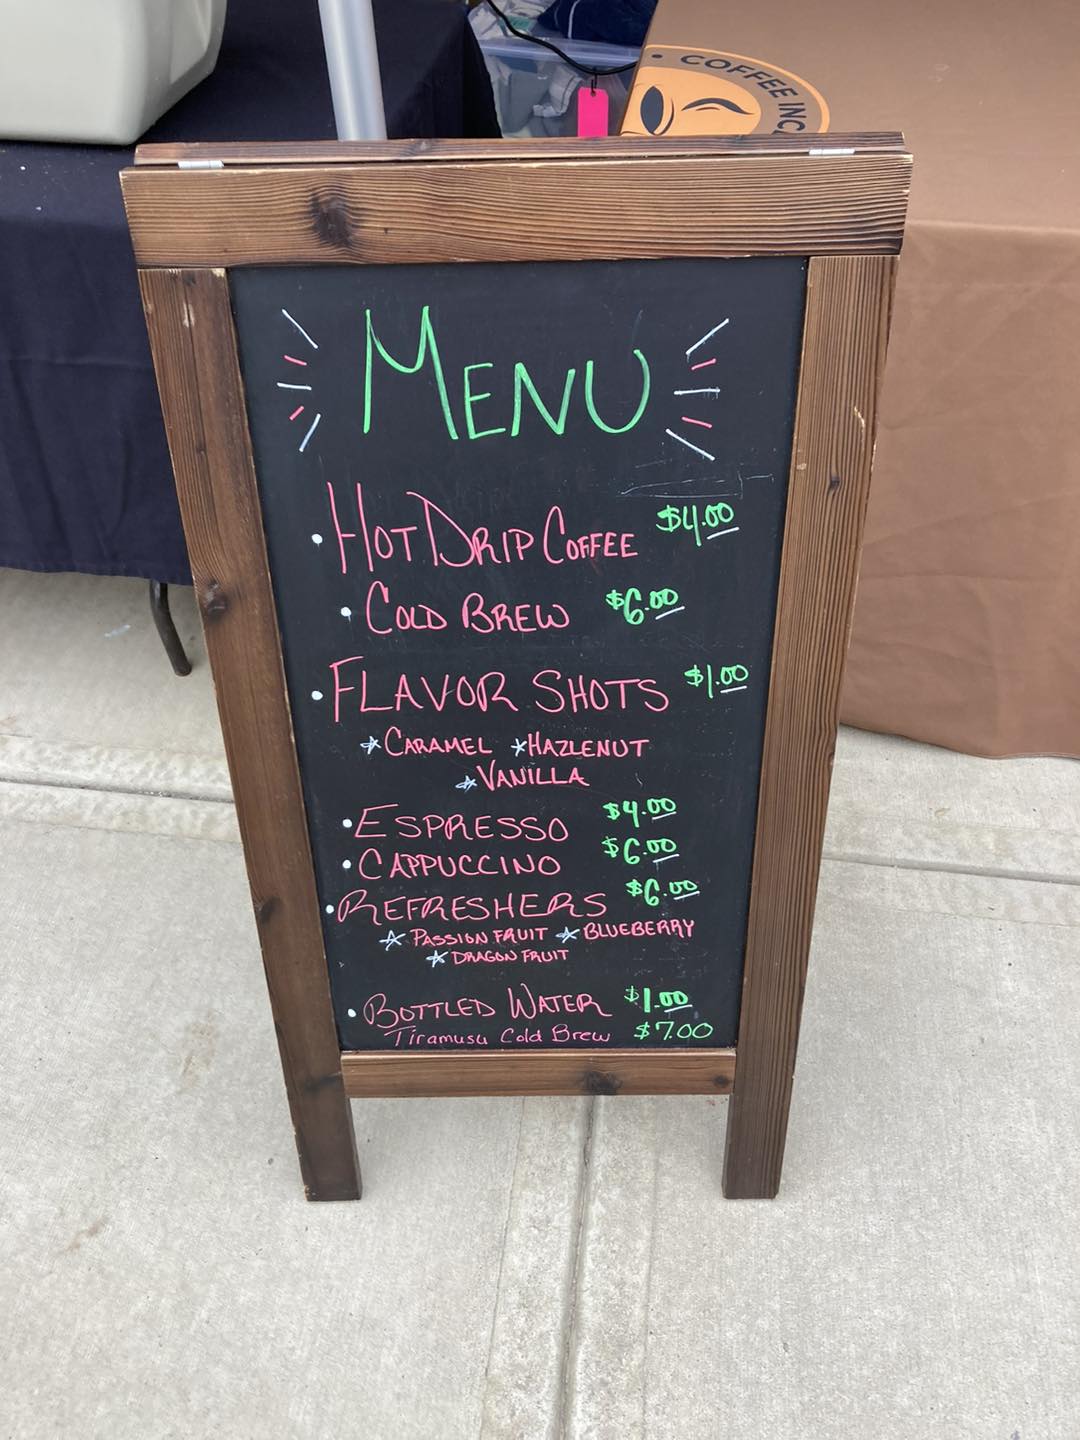 • COFFEE INC
MENU
• HOT DRIP COFFEE $4.00
• COLD BREW $6.00
• FLAVOR SHOTS $1.00
* CARAMEL * HAZLENUT
* VANILLA
• ESPRESSO $4.00
• CAPPUCCINO $6.00
• REFRESHERS $6.00
* PASSION FRUIT * BLUEBERRY
* DRAGON FRUIT
• BOTTLED WATER $1.00
Tiramusu Cold Brew $7.00